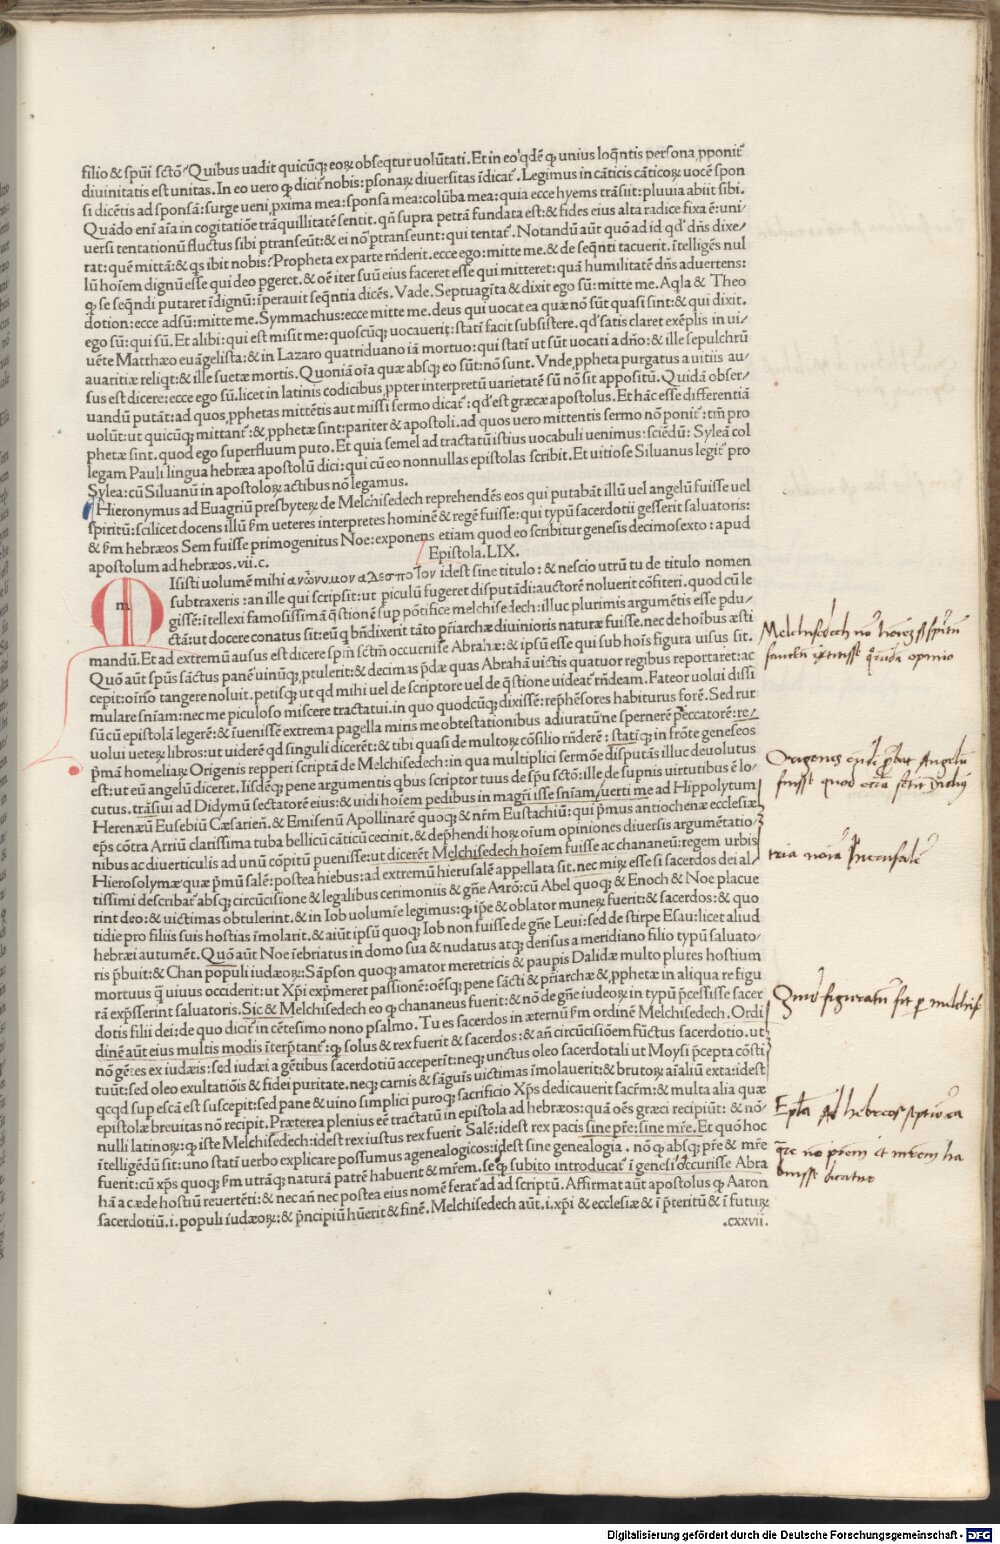 filio & spũi sctõ. Quibus uadit quicũq; eoꝝ obseqtur uolũtati. Et in eo qdẽ ꝙ unius loq̃ntis persona ꝓponit᷑
diuinitatis est unitas. In eo uero ꝙ dicit nobis: psonaꝝ diuersitas ĩdicat᷑. Legimus in cãticis cãticoꝝ uocẽ spon
si dicẽtis ad sponsã: surge ueni ꝓxima mea: sponsa mea: colũba mea: quia ecce hyems trãsiit: pluuia abiit sibi.
Quãdo eni aĩa in cogitatiõe trãquillitatẽ sentit. qñ supra petrã fundata est: & fides eius alta radice fixa ẽ: uni/
uersi tentationũ fluctus sibi ptranseũt: & ei nõ ptranseunt: qui tentat᷑. Notandũ aũt quõ ad id qd dñs dixe/
rat: quẽ mittã: & qs ibit nobis? Propheta ex parte rñderit. ecce ego: mitte me. & de seq̃nti tacuerit. ĩtelligẽs nul
lũ hoĩem dignũ esse qui deo pgeret. & oẽ iter suũ eius faceret esse qui mitteret: quã humilitatẽ dñs aduertens:
ꝙ se seq̃ndi putaret ĩdignũ: ĩperauit seq̃ntia dicẽs. Vade. Septuagĩta & dixit ego sũ: mitte me. Aqla & Theo
dotion: ecce adsũ: mitte me. Symmachus: ecce mitte me. deus qui uocat ea quæ nõ sũt quasi sint: & qui dixit.
ego sũ: qui sũ. Et alibi: qui est misit me: quoscũq; uocauerit: statĩ facit subsistere. qd satis claret exẽplis in ui/
uẽte Matthæo euãgelista: & in Lazaro quatriduano iã mortuo: qui statĩ ut sũt uocati a dño: & ille sepulchrũ
auaritiæ reliqt: & ille suetæ mortis. Quoniã oĩa quæ absq; eo sũt: nõ sunt. Vnde ꝓpheta purgatus a uitiis au/
sus est dicere: ecce ego sũ. licet in latinis codicibus ꝓpter interpretũ uarietatẽ sũ nõ sit appositũ. Quidã obser/
uandũ putãt: ad quos ꝓphetas mittẽtis aut missi sermo dicat᷑: qd est græce apostolus. Et hãc esse differentiã
uolũt: ut quicũq; mittant᷑: & ꝓphetæ sint: pariter & apostoli. ad quos uero mittentis sermo nõ ponit᷑: tm̃ pro
phetæ sint. quod ego superfluum puto. Et quia semel ad tractatũ istius uocabuli uenimus: sciẽdũ: Syleã col
legam Pauli lingua hebræa apostolũ dici: qui cũ eo nonnullas epistolas scribit. Et uitiose Siluanus legit᷑ pro
Sylea: cũ Siluanũ in apostoloꝝ actibus nõ legamus.
Hieronymus ad Euagriũ presbyteꝝ de Melchisedech reprehendẽs eos qui putabãt illũ uel angelũ fuisse uel
spiritũ: scilicet docens illũ ẜm ueteres interpretes hominẽ & regẽ fuisse: qui typũ sacerdotii gesserit saluatoris:
& ẜm hebræos Sem fuisse primogenitus Noe: exponens etiam quod eo scribitur genesis decimosexto: apud
apostolum ad hebræos. vii. c.
Epistola. LIX.
M Isisti uolumẽ mihi ανώνυμον αδεσποτον idest sine titulo: & nescio utrũ tu de titulo nomen
subtraxeris: an ille qui scripsit: ut piculũ fugeret disputãdi: auctorẽ noluerit cõfiteri. quod cũ le
gissẽ: ĩtellexi famosissimã q̃stionẽ sup põtifice melchisedech: illuc plurimis argumẽtis esse pdu/
ctã: ut docere conatus sit: eũ q bñdixerit tãto pĩarchæ diuinioris naturæ fuisse. nec de hoĩbus æsti
mandũ. Et ad extremũ ausus est dicere spm̃ sctm̃ occurrisse Abrahæ: & ipsũ esse qui sub hoĩs figura uisus sit.
Quõ aũt spũs sãctus panẽ uinũq; ꝓtulerit: & decimas p̃dæ quas Abrahã uictis quatuor regibus reportaret: ac
cepit: oĩno tangere noluit. petisq; ut qd mihi uel de scriptore uel de q̃stione uideat᷑ rñdeam. Fateor uolui dissi
mulare sñiam: nec me piculoso miscere tractatui. in quo quodcũq; dixissẽ: rephẽsores habiturus forẽ. Sed rur
sũ cũ epistolã legerẽ: & ĩuenissẽ extrema pagella miris me obtestationibus adiuratũ ne spernerẽ peccatorẽ: re/
uolui ueteꝝ libros: ut uiderẽ qd singuli dicerẽt: & tibi quasi de multoꝝ cõsilio rñderẽ: statiq; in frõte geneseos
p̃mã homeliaꝝ Origenis repperi scriptã de Melchisedech: in qua multiplici sermõe disputãs illuc deuolutus
est: ut eũ angelũ diceret. Iisdẽq; pene argumentis qbus scriptor tuus de spũ sctõ: ille de supnis uirtutibus ẽ lo/
cutus. trãsiui ad Didymũ sectatorẽ eius: & uidi hoĩem pedibus in magr̃i isse sñiam, uerti me ad Hippolytum
Herenæũ Eusebiũ Cæsarieñ. & Emisenũ Apollinarẽ quoq; & nr̃m Eustachiũ: qui p̃mus antiochenæ ecclesiæ
ep̃s cõtra Arriũ clarissima tuba bellicũ cãticũ cecinit. & dep̃hendi hoꝝ oĩum opiniones diuersis argumẽtatio/
nibus ac diuerticulis ad unũ cõpitũ puenisse: ut dicerẽt Melchisedech hoĩem fuisse ac chananeũ: regem urbis
Hierosolymæ quæ p̃mũ salẽ: postea hiebus: ad extremũ hierusalẽ appellata sit. nec miꝝ esse si sacerdos dei al/
tissimi describat᷑ absq; circũcisione & legalibus cerimoniis & gñe Aarõ: cũ Abel quoq; & Enoch & Noe placue
rint deo: & uictimas obtulerint. & in Iob uolumĩe legimus: ꝙ ip̃e & oblator muneꝝ fuerit: & sacerdos: & quo
tidie pro filiis suis hostias ĩmolarit. & aiũt ipsũ quoq; Iob non fuisse de gñe Leui: sed de stirpe Esau: licet aliud
hebræi autumẽt. Quõ aũt Noe ĩebriatus in domo sua & nudatus atq; derisus a meridiano filio typũ saluato/
ris p̃buit: & Chan populi iudæoꝝ: Sãpson quoq; amator meretricis & paupis Dalidæ multo plures hostium
mortuus q̃ uiuus occiderit: ut Xp̃i exp̃meret passionẽ: oẽsq; pene sãcti & p̃iarchæ & ꝓphetæ in aliqua re figu
rã exp̃sserint saluatoris. Sic & Melchisedech eo ꝙ chananeus fuerit: & nõ de gñe iudeoꝝ in typũ p̃cessisse sacer
dotis filii dei: de quo dicit᷑ in cẽtesimo nono psalmo. Tu es sacerdos in æternũ ẜm ordinẽ Melchisedech. Ordi
dinẽ aũt eius multis modis ĩterp̃tant᷑: ꝙ solus & rex fuerit & sacerdos: & añ circũcisiõem fũctus sacerdotio. ut
nõ gẽtes ex iudæis: sed iudæi a gẽtibus sacerdotiũ acceperĩt: neq; unctus oleo sacerdotali ut Moysi p̃cepta cõsti
tuũt: sed oleo exultatiõis & fidei puritate. neq; carnis & sãguĩs uictimas ĩmolauerit: & brutoꝝ aĩaliũ exta: idest
qcqd sup escã est suscepit: sed pane & uino simplici puroq; sacrificio Xp̃s dedicauerit sacr̃m: & multa alia quæ
epistolæ breuitas nõ recipit. Præterea plenius eẽ tractatũ in epistola ad hebræos: quã oẽs græci recipiũt: & nõ/
nulli latinoꝝ: q; iste Melchisedech: idest rex iustus rex fuerit Salẽ: idest rex pacis sine pr̃e: sine mr̃e. Et quõ hoc
ĩtelligẽdũ sit: uno statĩ uerbo explicare possumus agenealogicos: idest sine genealogia. nõ q absq; pr̃e & mr̃e
fuerit: cũ xp̃s quoq; ẜm utrãq; naturã patrẽ habuerit & mr̃em. se q subito introducat᷑ ĩ genesi occurisse Abra
hã a cæde hostiũ reuertẽti: & nec añ nec postea eius nomẽ ferat᷑ ad ad scriptũ. Affirmat aũt apostolus ꝙ Aaron
sacerdotiũ. i. populi iudæoꝝ: & p̃ncipiũ hũerit & finẽ. Melchisedech aũt. i. xp̃i & ecclesiæ & ĩ p̃teritũ & ĩ futuꝝ
.CXXVII.
Melchisedech
opinio
Origenes
fuisse quod
figuratum
hebreos